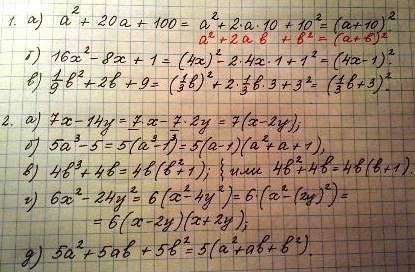 1. а) a² + 20a + 100 = a² + 2·a·10 + 10² = (a+10)²
a² + 2ab + b² = (a+b)²
б) 16x² - 8x + 1 = (4x)² - 2·4x·1 + 1² = (4x-1)².
в) 1/9 b² + 2b + 9 = (1/3 b)² + 2·1/3 b·3 + 3² = (1/3 b+3)².
2. а) 7x - 14y = 7·x - 7·2y = 7(x-2y);
б) 5a³ - 5 = 5(a³ - 1³) = 5(a-1)(a²+a+1),
в) 4b³ + 4b = 4b(b²+1); { или 4b² + 4b = 4b(b+1).
г) 6x² - 24y² = 6(x² - 4y²) = 6·(x² - (2y)²) =
= 6(x-2y)(x+2y);
д) 5a² + 5ab + 5b² = 5(a² + ab + b²).